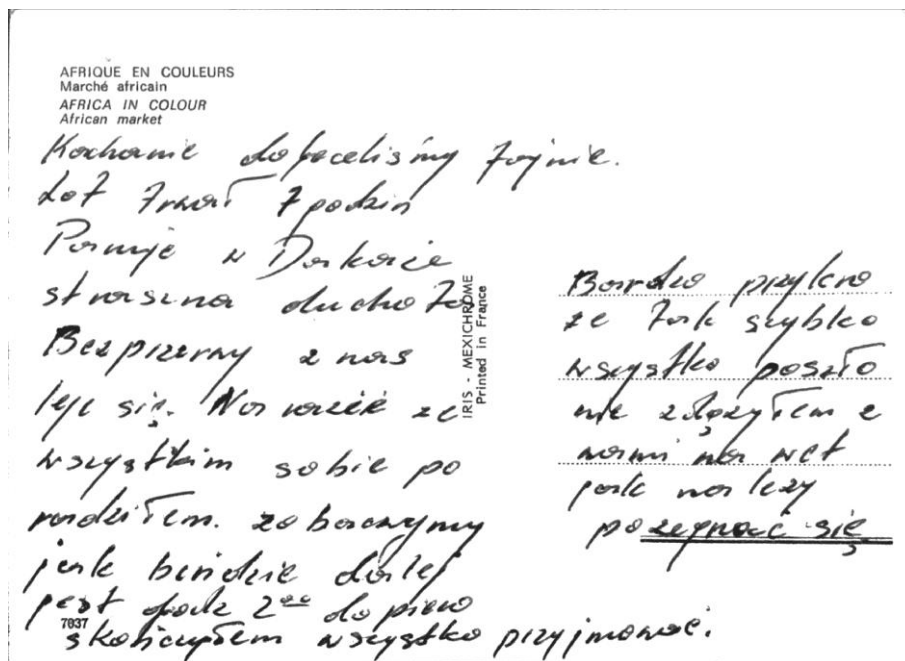 AFRIQUE EN COULEURS
Marché africain
AFRICA IN COLOUR
African market
Kochanie dolecieliśmy fajnie.
Lot trwał 7 godzin
Panuje w Dakarze
straszna duchota
Bez przerwy z nas
leje się. Na razie ze
wszystkim sobie po
radziłem. zobaczymy
jak będzie dalej
jest godz 2⁰⁰ dopiero
skończyłem wszystko przyjmować.
7037
IRIS - MEXICHROME
Printed in France
Bardzo przykro
że tak szybko
wszystko poszło
nie zdążyłem z
wami na wet
jak należy
pożegnać się